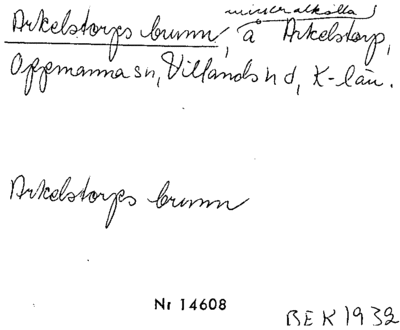 Arkelstorps brunn, mineralkälla å Arkelstorp,
Oppmanna sn, Villands hd, K-län.
Arkelstorps brunn
Nr 14608
BEK 1932